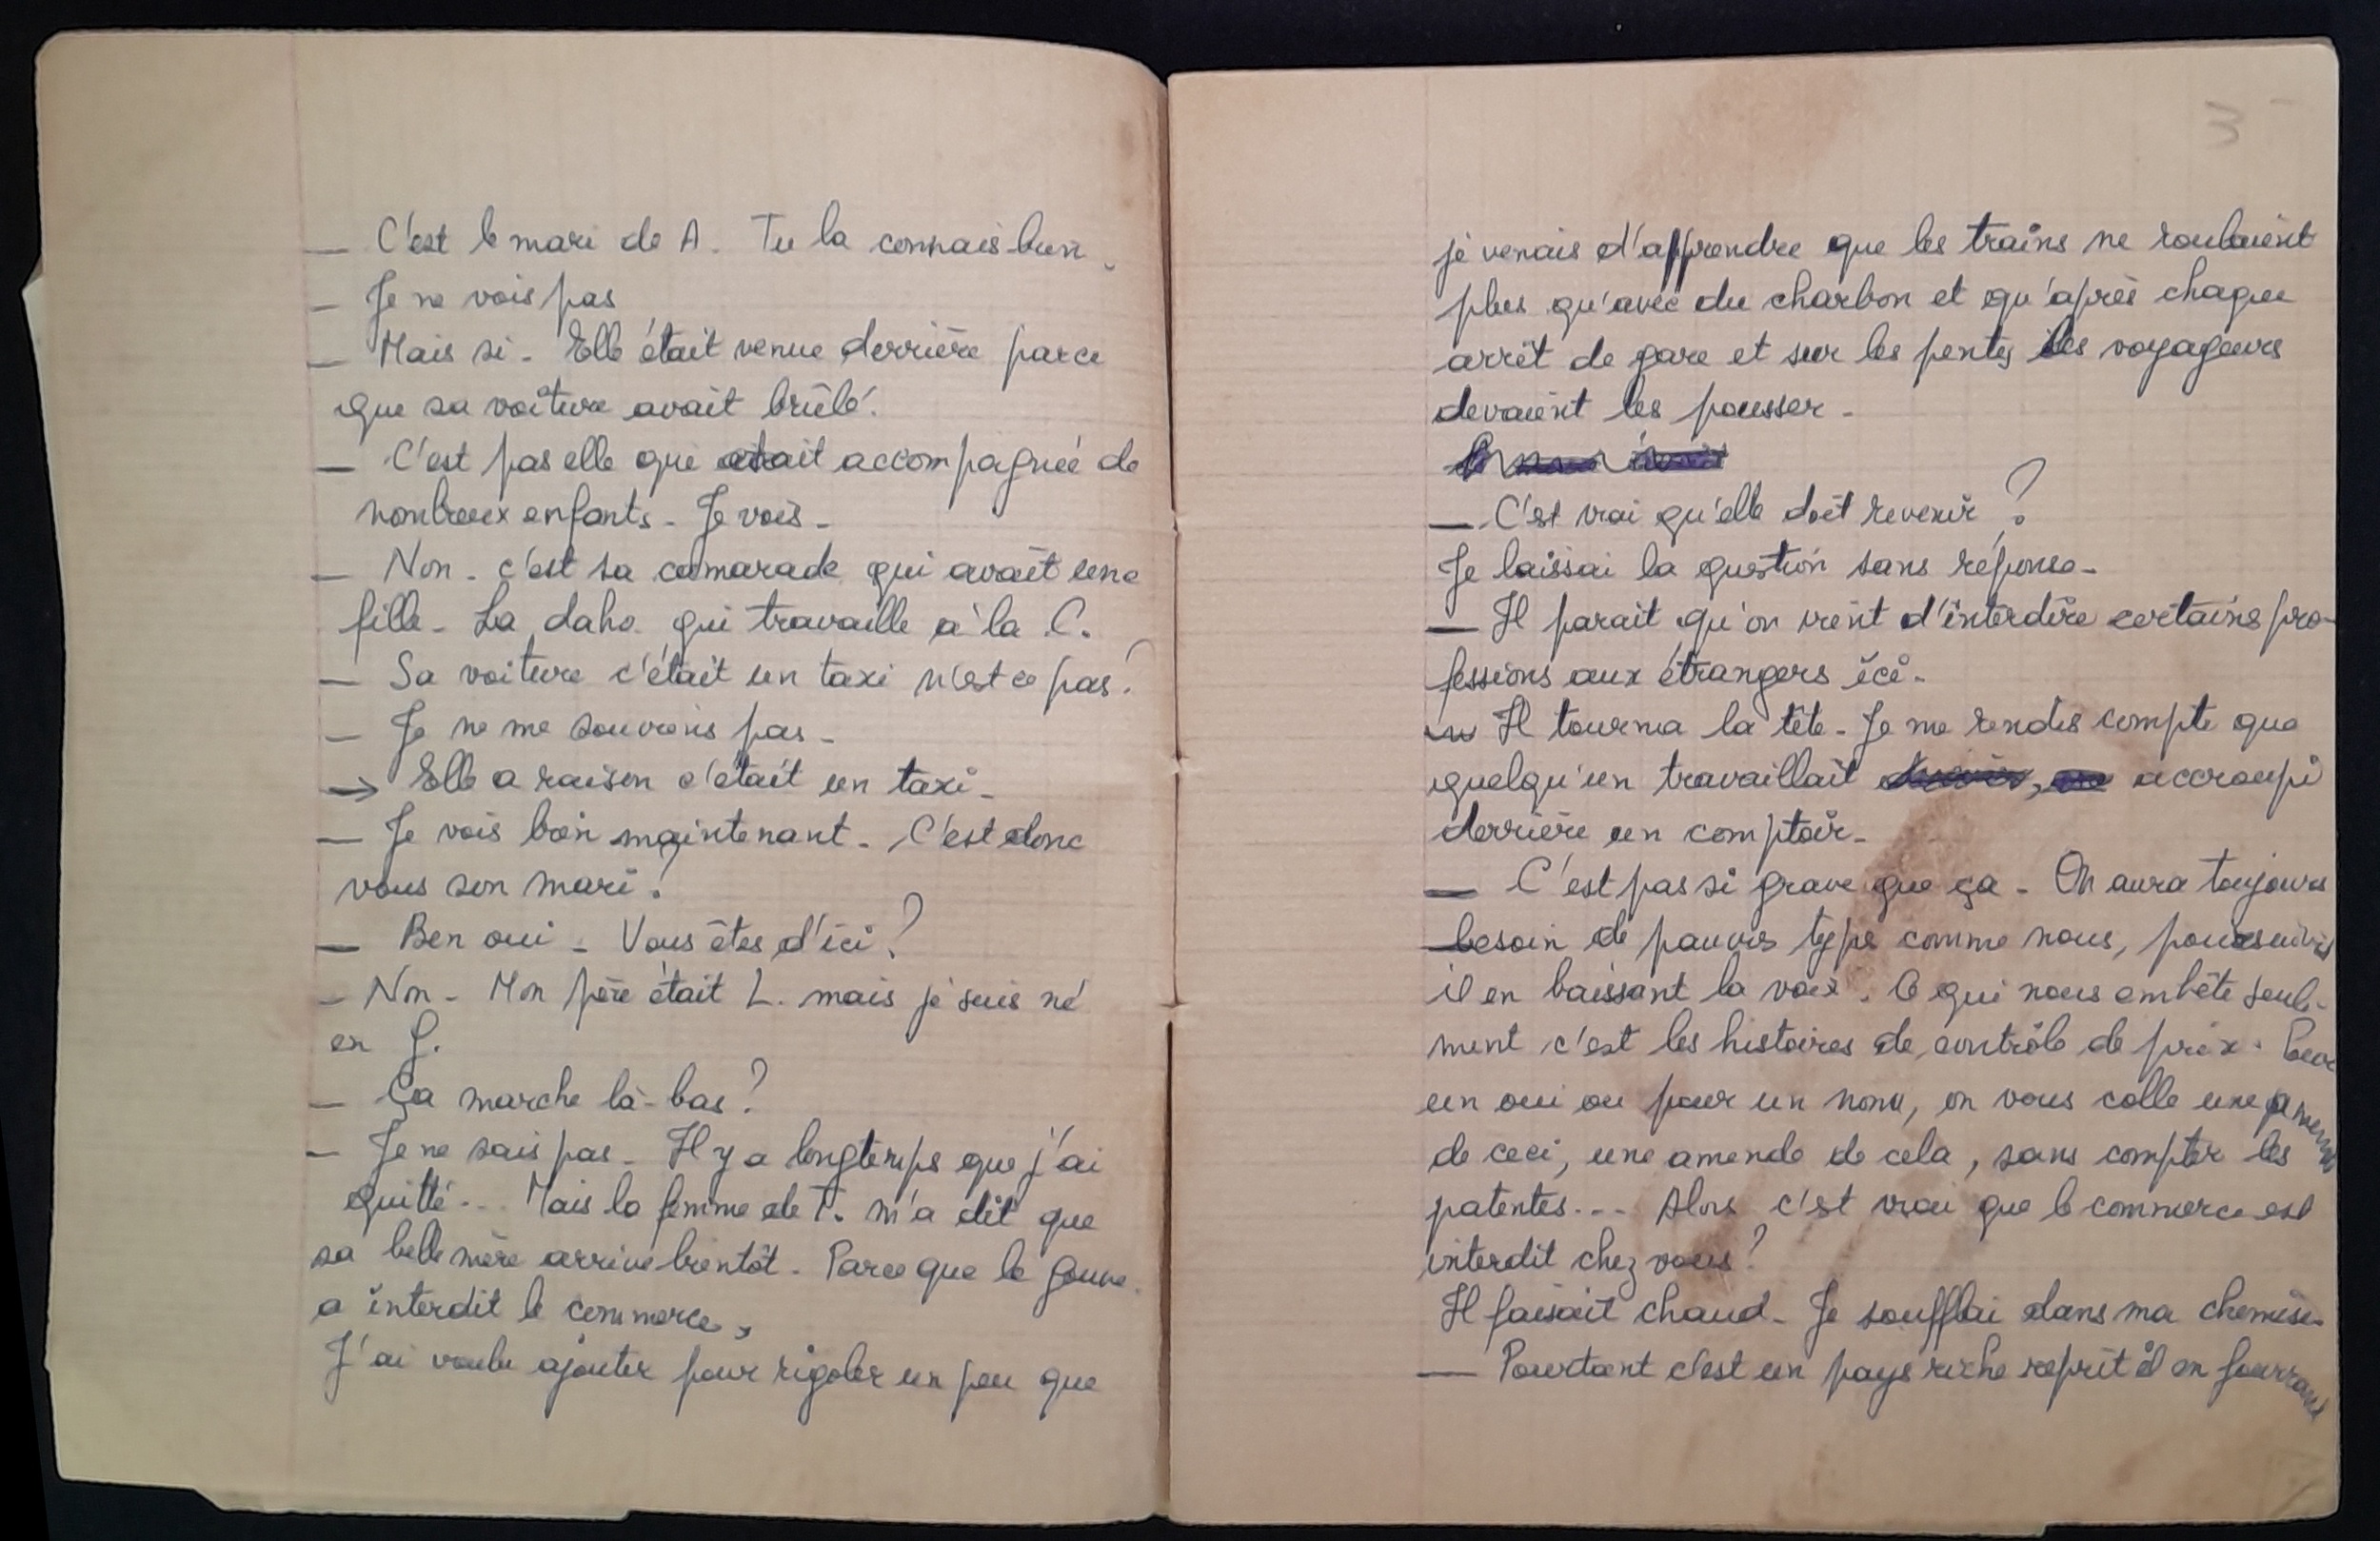 — C'est le mari de A. Tu la connais bien.
— Je ne vois pas
— Mais si - Elle était venue derrière parce
que sa voiture avait brûlé.
— C'est pas elle qui était accompagnée de
nombreux enfants - Je vois -
— Non - c'est sa camarade qui avait une
fille - La daho. qui travaille à la C.
— Sa voiture c'était un taxi n'est ce pas?
— Je ne me souviens pas -
→ Elle a raison c'était un taxi -
— Je vois bien maintenant - C'est donc
vous son mari?
— Ben oui - Vous êtes d'ici?
— Non - Mon père était L. mais je suis né
en G.
— Ça marche là-bas?
— Je ne sais pas - Il y a longtemps que j'ai
quitté... Mais la femme de T. m'a dit que
sa belle mère arrive bientôt - Parce que le gouve.
a interdit le commerce,
J'ai voulu ajouter pour rigoler un peu que
3
je venais d'apprendre que les trains ne roulaient
plus qu'avec du charbon et qu'après chaque
arrêt de gare et sur les pentes les voyageurs
devaient les pousser -
— C'est vrai qu'elle doit revenir?
Je laissai la question sans réponse -
— Il parait qu'on vient d'interdire certaines pro-
fessions aux étrangers ici -
Il tourna la tête - Je me rendis compte que
quelqu'un travaillait accroupi
derrière un comptoir -
— C'est pas si grave que ça - On aura toujours
besoin de pauvres type comme nous, poursuivis
il en baissant la voix. Ce qui nous embête seule-
ment c'est les histoires de contrôle de prix. Pour
un oui ou pour un non, on vous colle une amende
de ceci, une amende de cela, sans compter les
patentes... Alors c'est vrai que le commerce est
interdit chez vous?
Il faisait chaud - Je soufflai dans ma chemise -
— Pourtant c'est un pays riche reprit il en fourrant